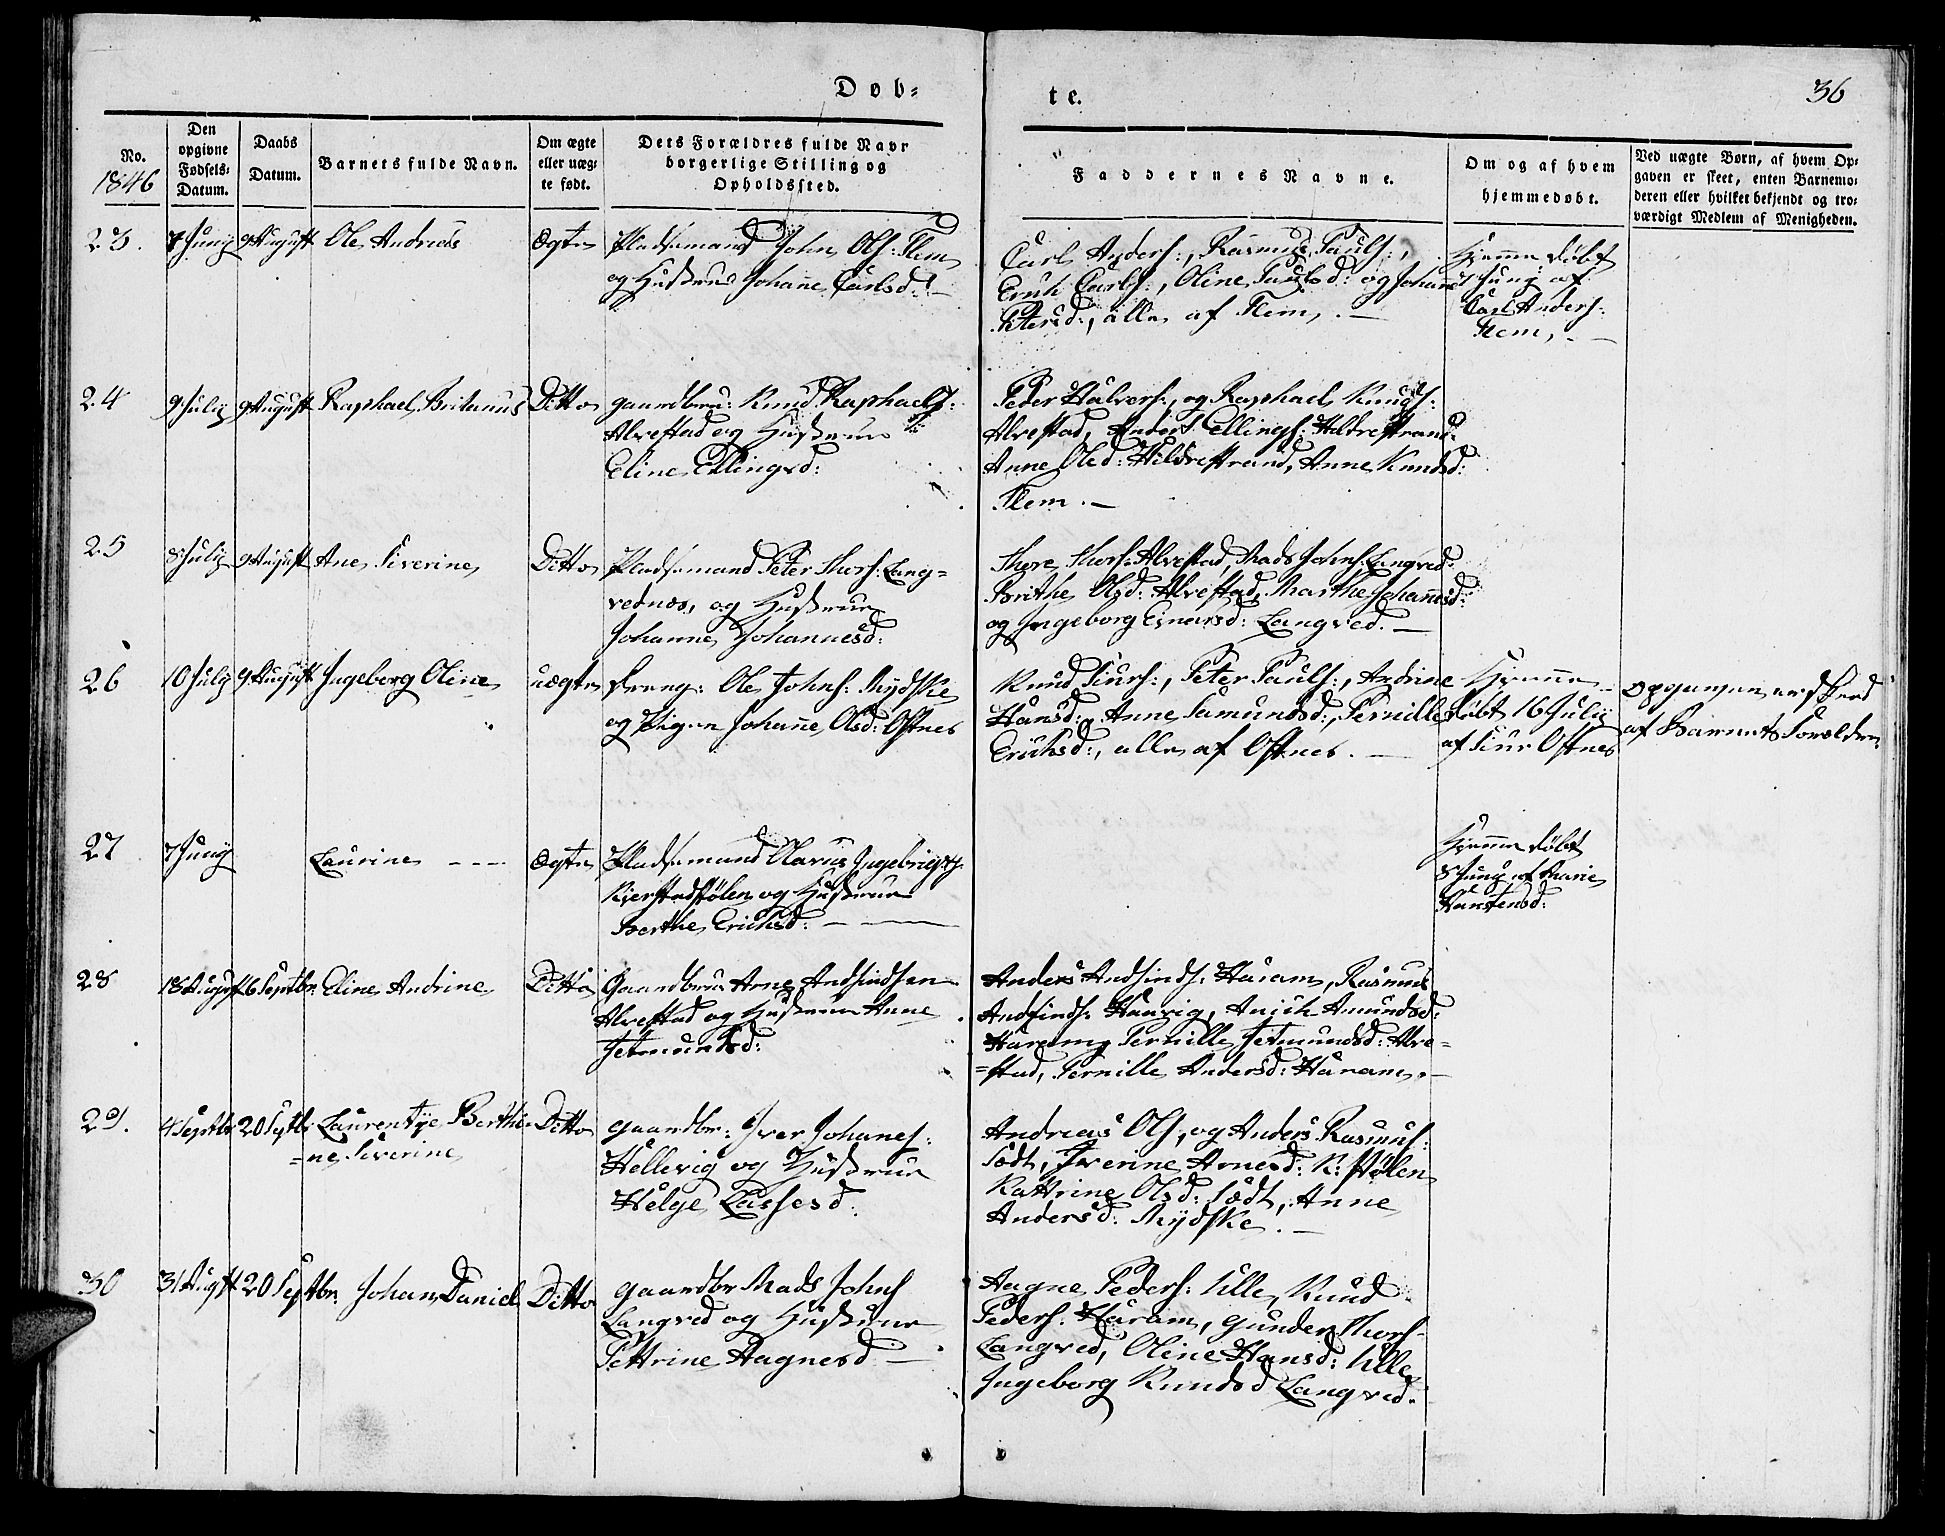 Døb-
te.
36
No.
1846
Den
opgivne
Fødsels-
Datum.
Daabs
Datum.
Barnets fulde Navn.
Om ægte
eller uæg-
te født.
Dets Forældres fulde Navr
borgerlige Stilling og
Opholdssted.
Faddernes Navne.
Om og af hvem
hjemmedøbt.
Ved uægte Børn, af hvem Op-
gaven er skeet, enten Barnemo-
deren eller hvilket bekjendt og tro-
værdigt Medlem af Menigheden.
23. 7 Juny 9 August Ole Andreas Ægte Pladsemand John Ols: Flem
og Hustrue Johanne Carlsd: –
Carl Anders:, Rasmus Pauls:,
Erich Carls:, Oline Paulsd: og Johanne
Petersd:, alle af Flem, . –
Hjemme døbt
7 Juny af
Carl Anders:
Flem, . –
24 9 July 9 August Raphael Britanus Ditto gaardbru: Knud Raphaels:
Alvestad og Hustrue
Eline Ellingsd:
Peder Halvors:, og Raphael Knuds:
Alvestad, Anders Ellings: Hildrestrand,
Anne Olsd: Hildrestrand, Anne Knudsd:
Flem. –
25 8 July 9 August Ane Siverine Ditto Pladsemand Peter Thors: Lang=
vednæs, og Hustrue
Johanne Johannesd:
Thore Thors: Alvestad, Mads Johns: Langved
Brithe Olsd: Alvestad, Marthe Johannesd:
og Ingeborg Einarsd: Langved. –
26 10 July 9 August Ingeborg Oline uægte dreng: Ole Johns: Mydske
og Pigen Johanne Olsd: Ostnes
Knud Siurs:, Peter Pauls:, Andrine
Hansd:, Anne Samundsd:, Pernille
Erichsd:, alle af Ostnes. –
Hjemme
døbt 16 July
af Siur Ostnes
Opgaven er skeed
af Barnets Forældre.
27 7 Juny Laurine - - - Ægte Pladsemand Olaus Ingebrigts:
Kierstadstølen og Hustrue
Berthe Erichsd: –
Hjemme døbt
8 Juny af Marie
Karstensd:
28 18 August 6 Septbr: Eline Andrine Ditto Gaardbru: Arne Andfindsen
Alvestad og Hustrue Anne
Jetmundsd:
Anders Andfinds: Haram, Rasmus
Andfinds: Haurig, Anich Amundsd:
Haram, Pernille Jetmundsd: Alve=
=stad, Pernille Andersd: Haram. –
29. 4 Septbr 20 Septbr Laurentze Berthi- Ditto gaardbr: Iver Johanes:
=ne Siverine
Hellevig og Hustrue
Helge Lassesd:
Andreas Ols, og Anders Rasmus:
Sødt, Iverine Arnesd: K: stølen
Kattrine Olsd: Sødt, Anne
Andersd: Mydske. –
30 31 Augst 20 Septbr: Johan Daniel Ditto gaardbr Mads Johns
Langved og Hustrue
Pettrine Aagnesd –
Aagne Peders: Ulle, Knud
Peders: Haram, Gunder Thors-
Langved, Oline Hansd: Ulle
Ingeborg Knudsd Langved.